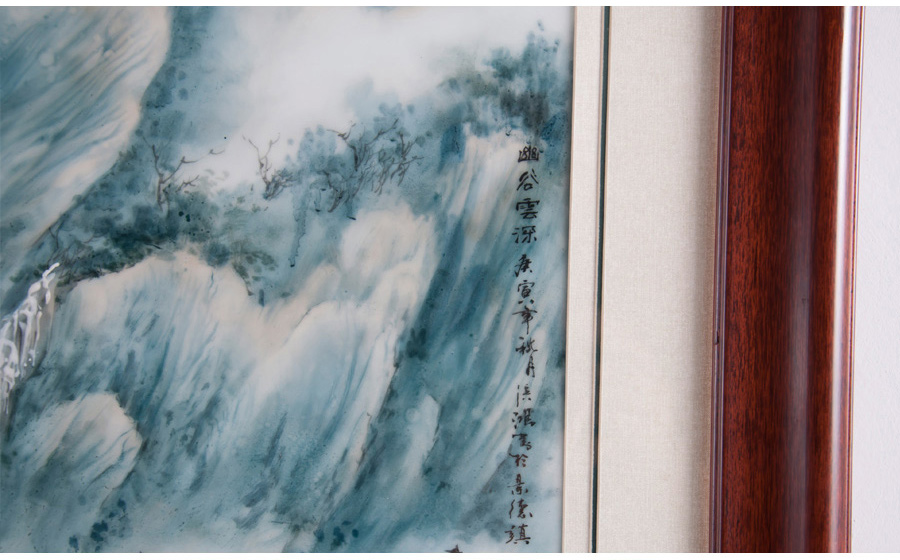 幽谷雲深庚寅年秋月洪鴻寫於景德鎮